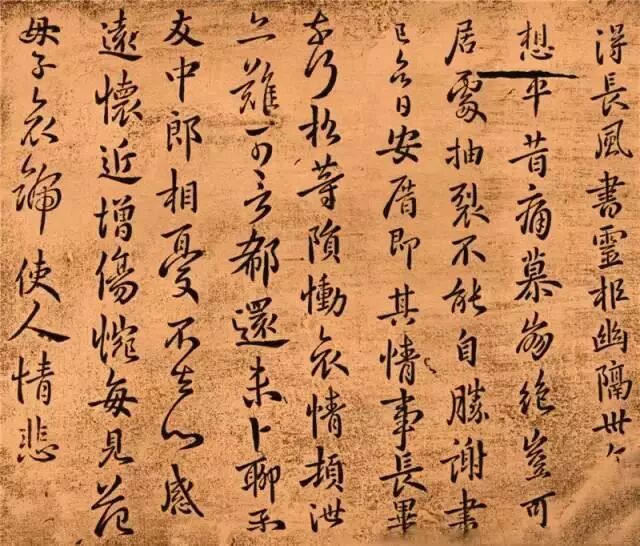 得長風書靈柩幽隔卅年
想平昔痛慕崩絕豈可
居處抽裂不能自勝謝書
已具日安厝即其情事長畢
奈何松等隕慟哀情頓泄
亦難可言郗還未卜聊示
友中郎相憂不去心感
遠懷近增傷惋每見范
母子哀號使人情悲